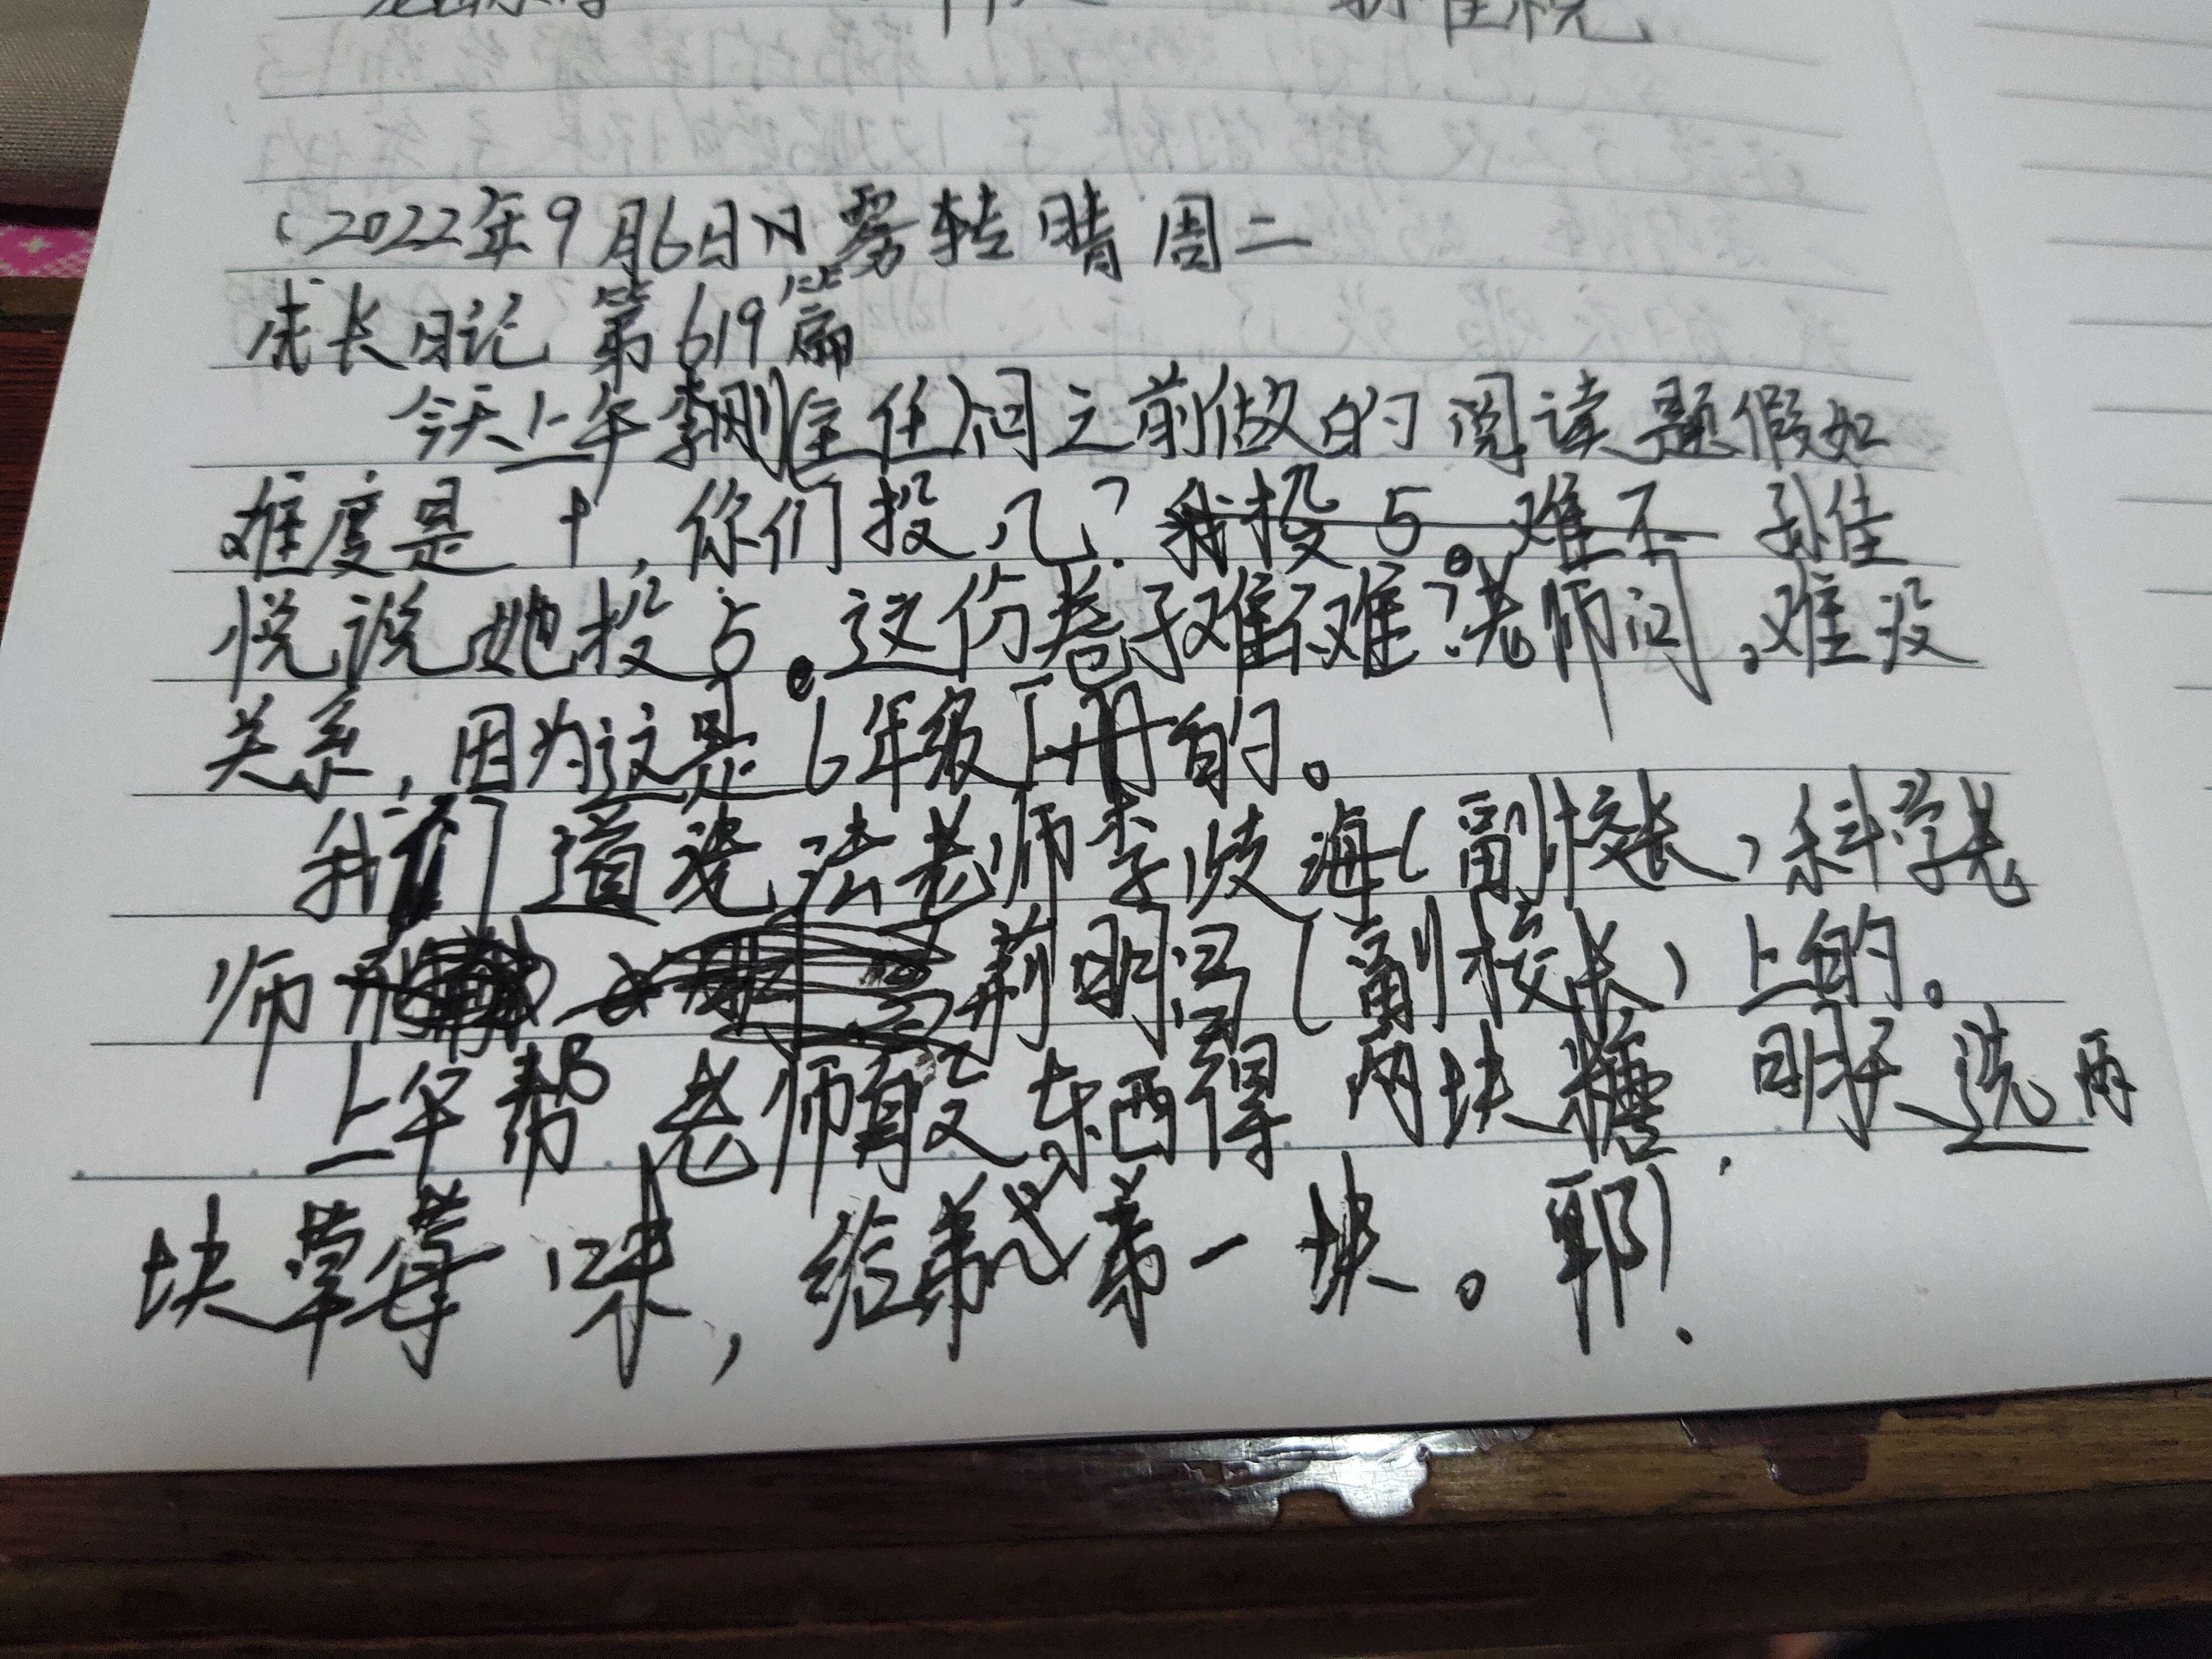 2022年9月6日 雾转晴 周二
成长日记 第619篇
今天上午李刚主任问之前做的阅读题假如
难度是十，你们投几？我投5。难不 孙佳
悦说她投5。这份卷子难不难？老师问，难没
关系，因为这是6年级下册的。
我们道德法老师李歧海（副校长，科学老
师 荊明冯（副校长）上的。
上午帮老师取东西得两块糖，明天选两
块草莓味，给弟弟一块。耶！